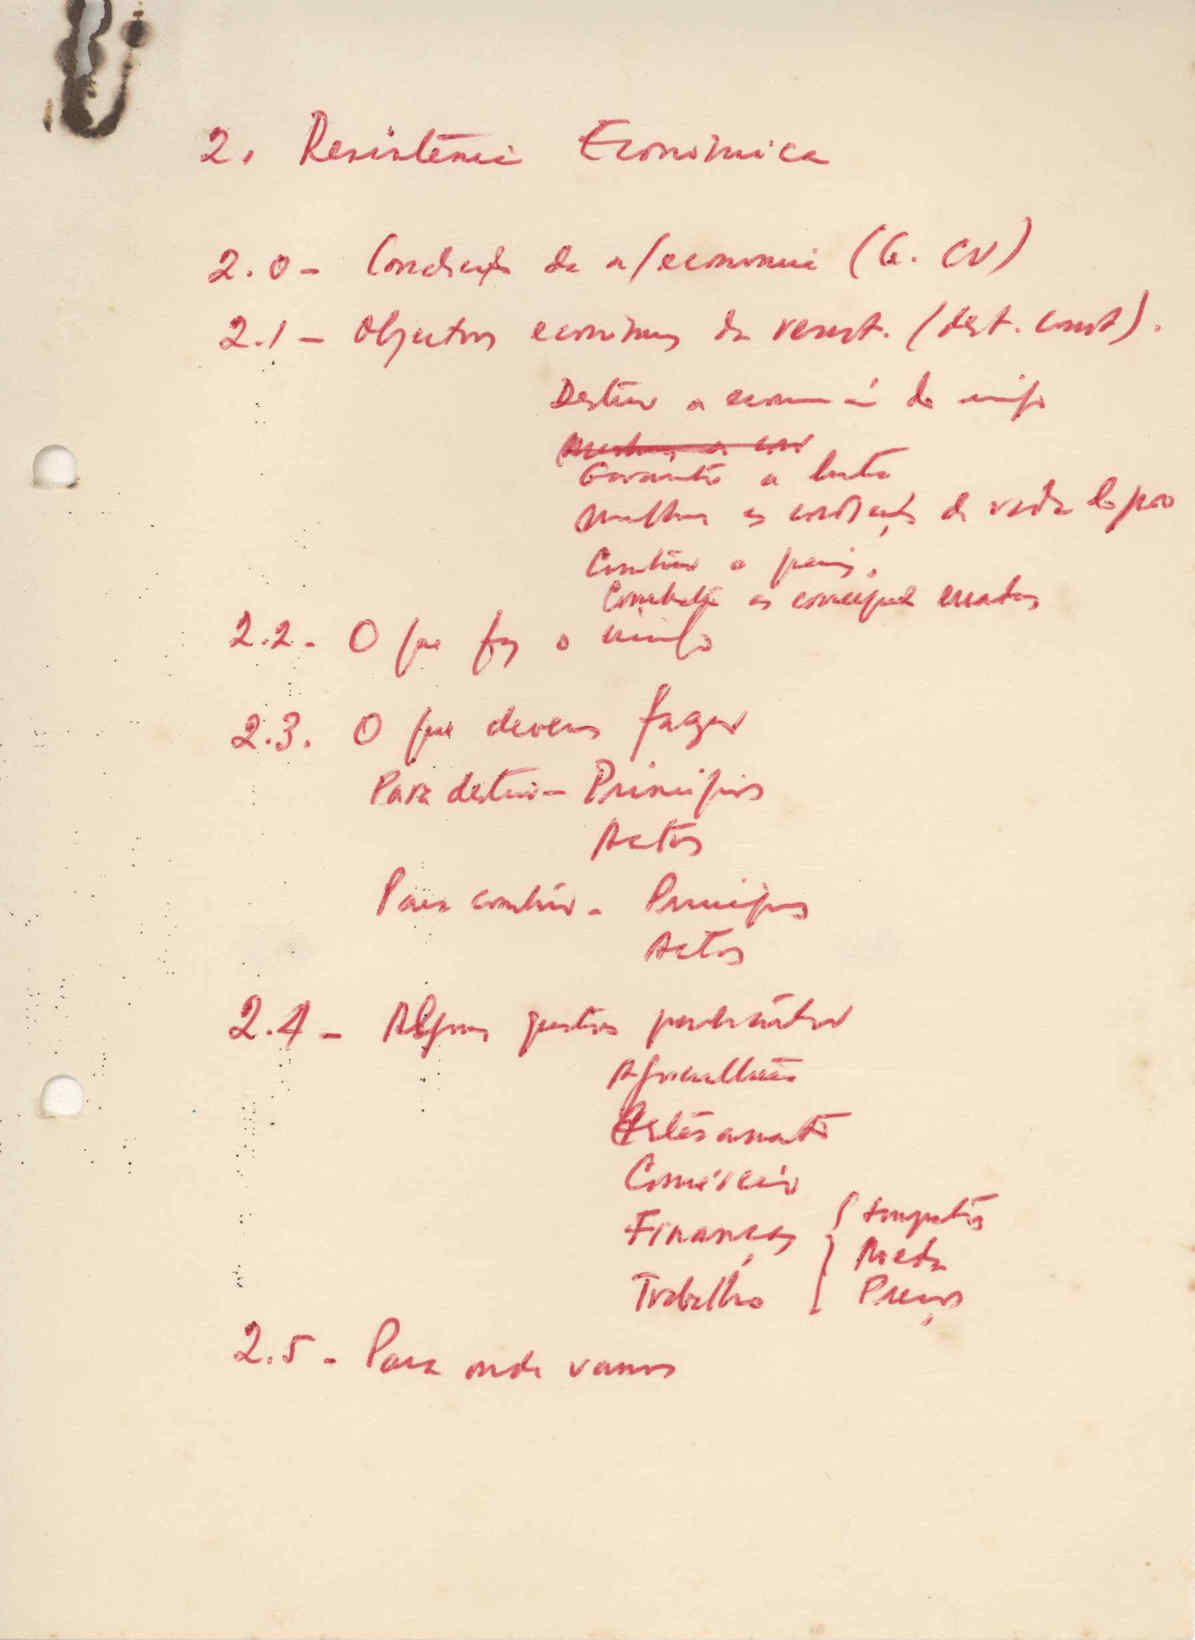 2. Resistência Económica
2.0 - Condições da n/economia (G. CV)
2.1 - Objectivos económicos da resist. (dest. const).
Destruir a economia do inimigo
Garantir a luta
Melhorar as condições de vida do povo
Construir o país.
Combater as consequências
2.2 - O que faz o inimigo
2.3. O que devemos fazer
Para destruir - Princípios
Actos
Para construir - Princípios
Actos
2.4 - Algumas questões
Agricultura
Artesanato
Comércio
Finanças { Impostos
Moeda
Trabalho Preços
2.5 - Para onde vamos